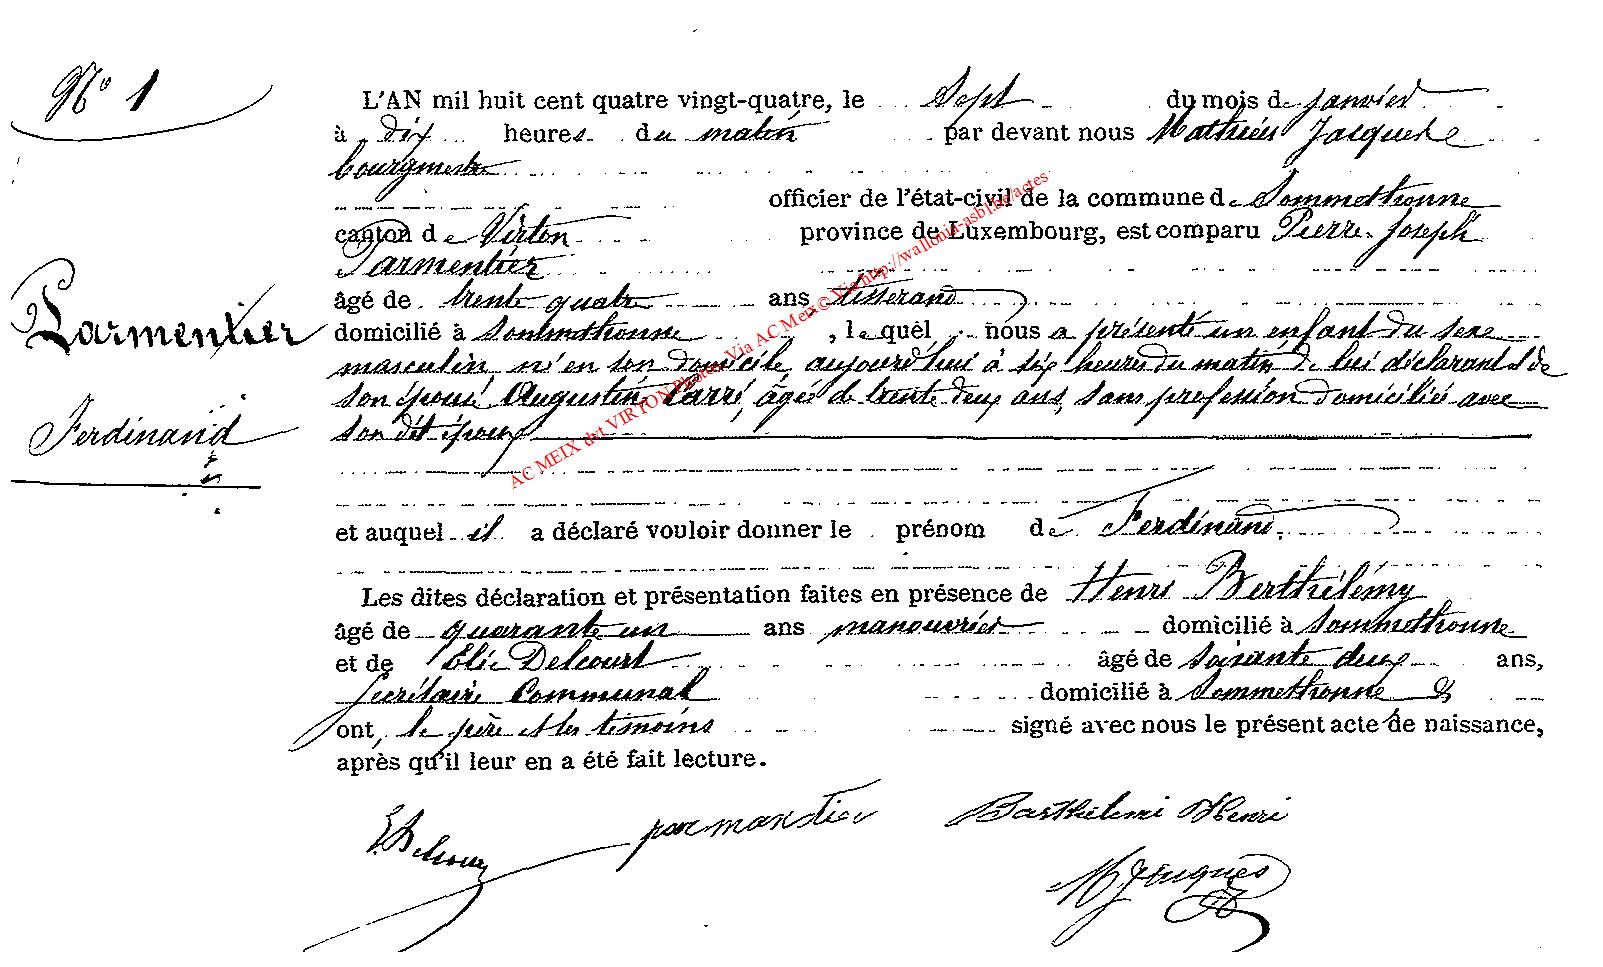 N° 1
L'AN mil huit cent quatre vingt-quatre, le Sept du mois de janvier
à dix heures du matin par devant nous Mathieu Jacques
bourgmestre
officier de l'état-civil de la commune de Sommethonne
canton de Virton province de Luxembourg, est comparu Pierre-Joseph
Parmentier
âgé de trente quatre ans tisserand
Parmentier
domicilié à Sommethonne , lequel nous a présenté un enfant du sexe
masculin, né en son domicile, aujourd'hui à six heures du matin de lui déclarant et de
son épouse Augustine Carré, âgée de trente deux ans, sans profession domiciliée avec
Ferdinand
son dit époux
et auquel il a déclaré vouloir donner le prénom de Ferdinand.
Les dites déclaration et présentation faites en présence de Henri Berthélémy
âgé de quarante un ans manouvrier domicilié à Sommethonne
et de Elie Delcourt âgé de soixante deux ans,
secrétaire Communal domicilié à Sommethonne &
ont, le père et les témoins signé avec nous le présent acte de naissance,
après qu'il leur en a été fait lecture.
E. Delcour parmantier Barthélemi Henri
M Jacques
AC MEIX dvt VIRTON Photos Via AC Meix © Via http://wallonia-asbl.be/actes